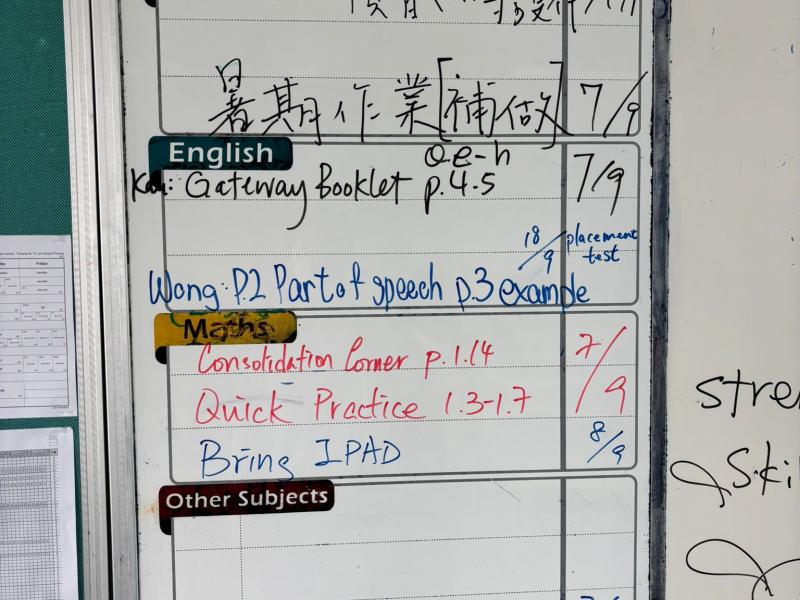 暑期作業[補做] 7/9
English
Q e-h
Gateway Booklet p.4-5 7/9
18/9 placement test
Wong: P.2 Part of speech p.3 example
Maths
Consolidation Corner p.1.14 7/9
Quick Practice 1.3-1.7
Bring IPAD 8/9
Other Subjects